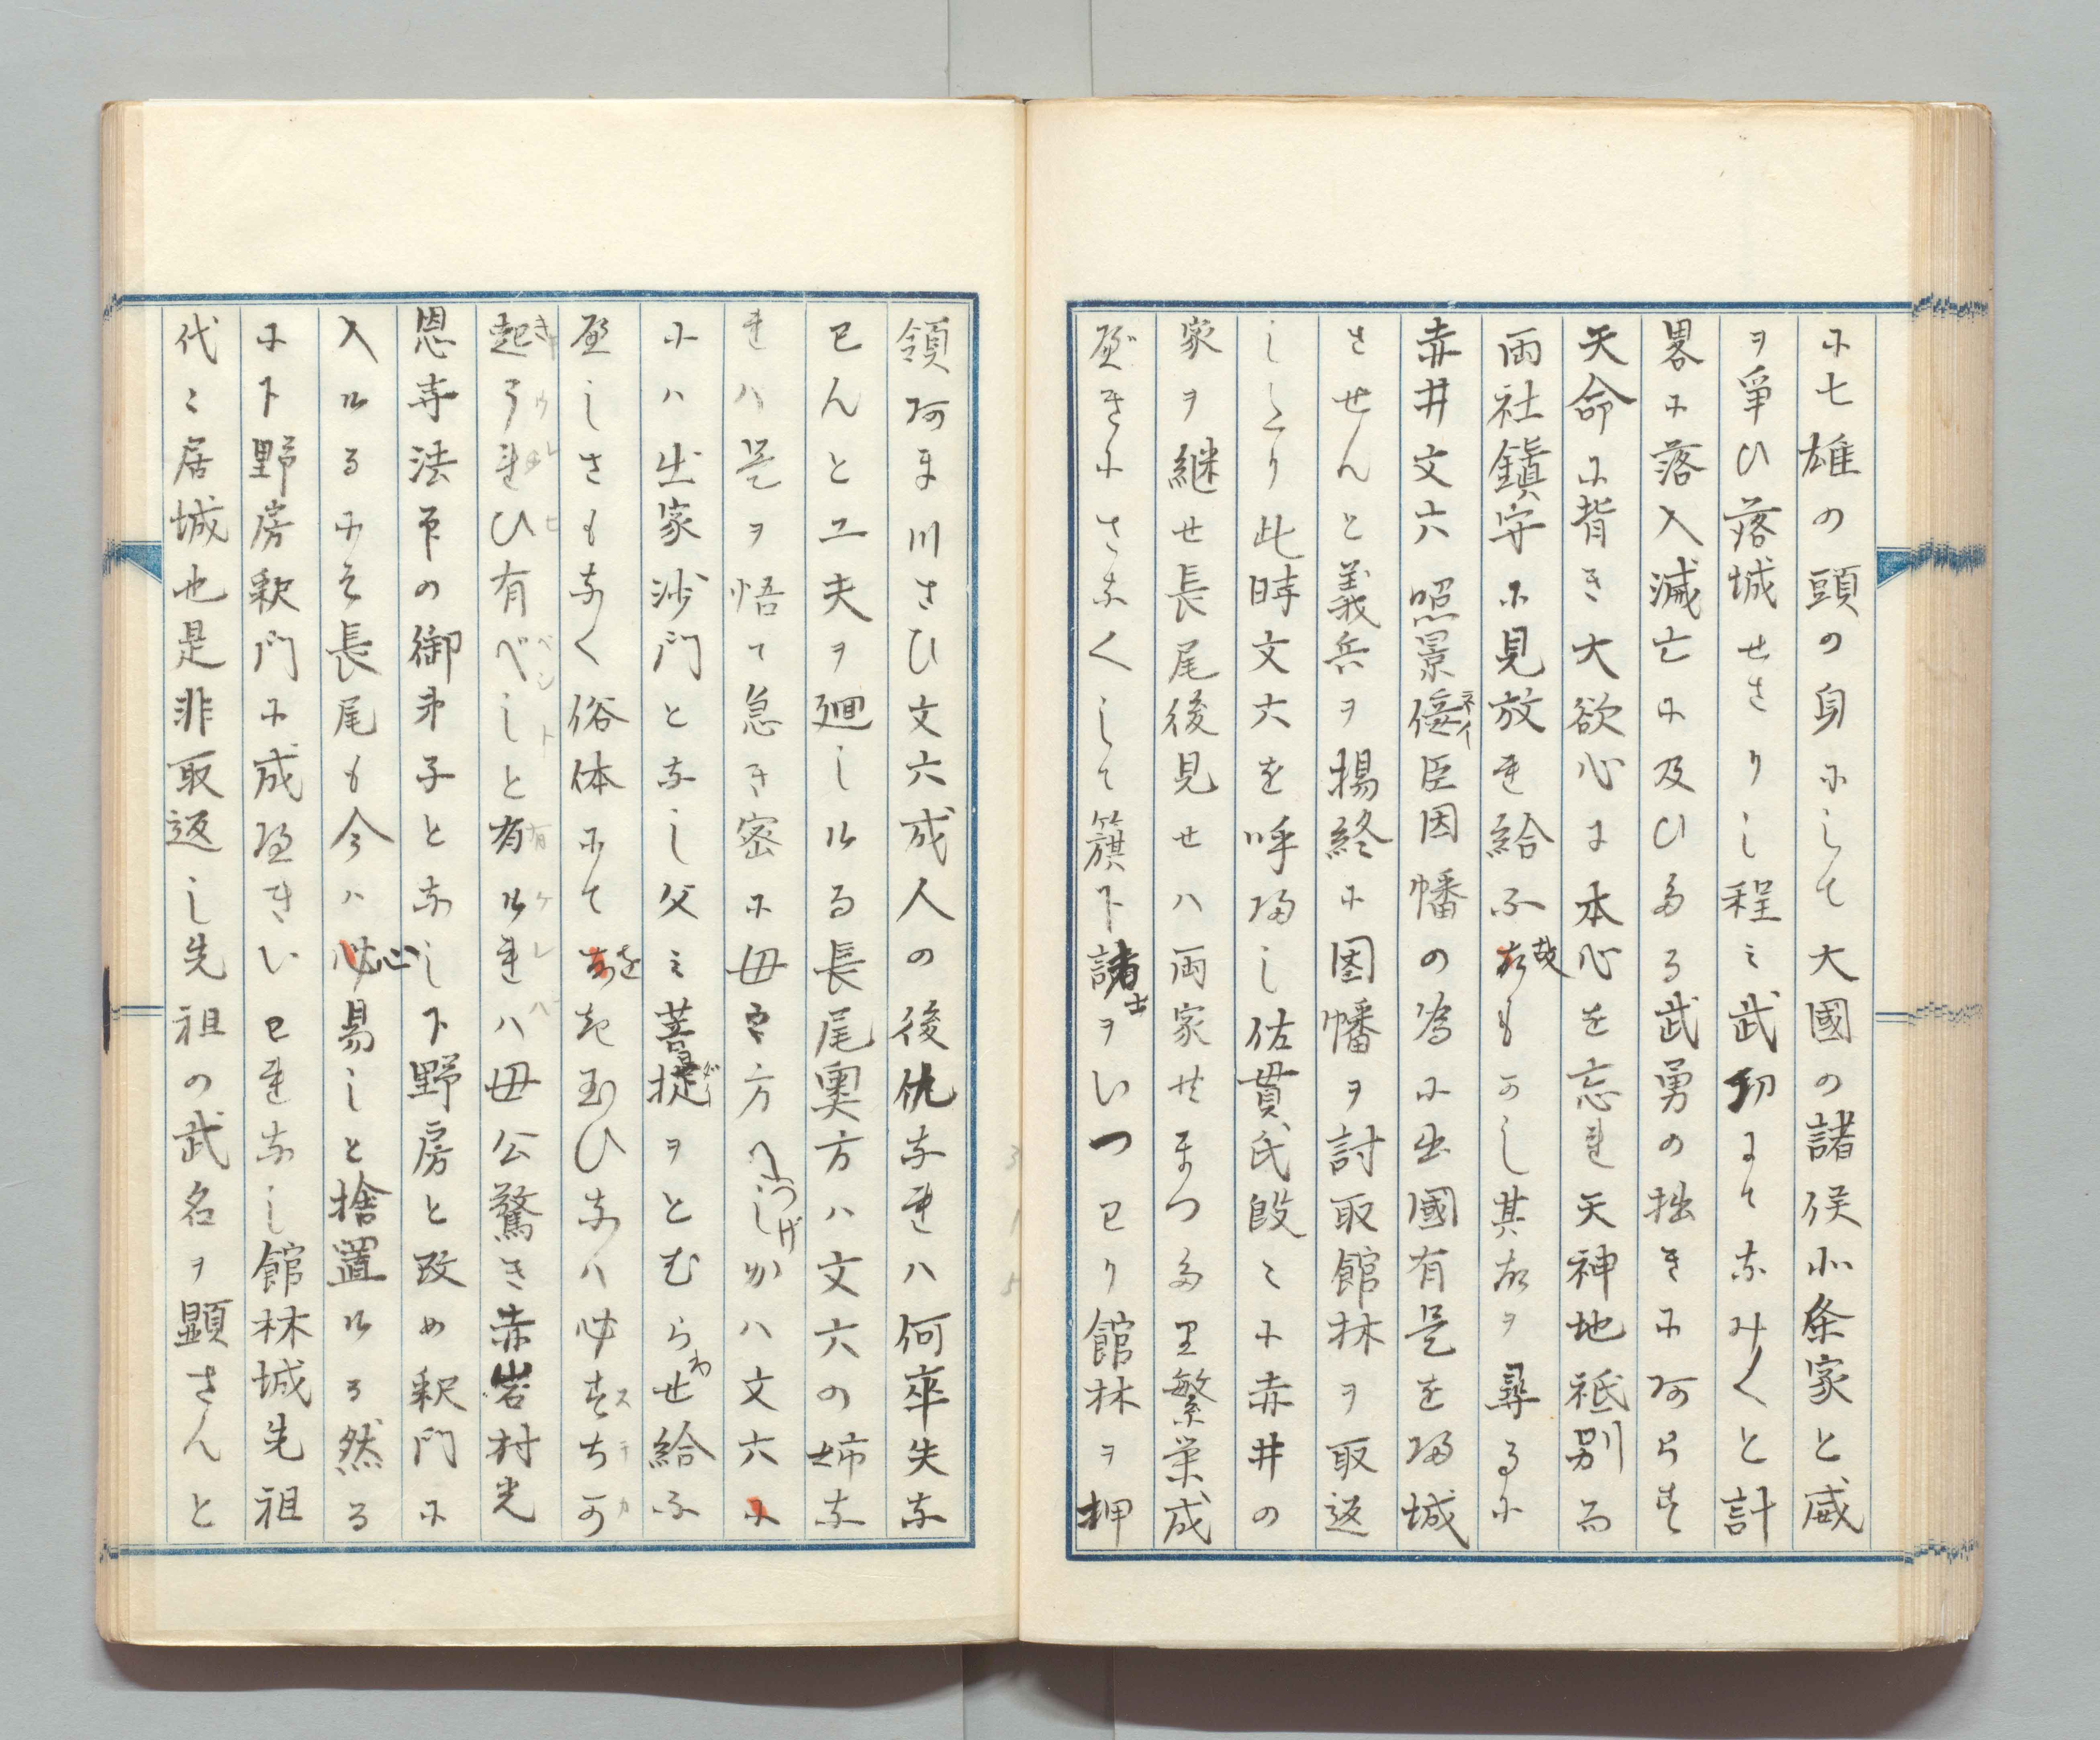 に七雄の頭の身にして大國の諸侯北条家と威
ヲ爭ひ落城せさりし程ミ武功にてなみ〱と計
畧に落入滅亡に及ひたる武勇の拙きにあらす
天命に背き大欲心に本心を忘れ天神地祇別而
両社鎮守に見放れ給ふ哉もかし其故ヲ尋るに
赤井文六照景侫臣因幡の為に出國有是を帰城
させんと義兵ヲ揚終に因幡ヲ討取館林ヲ取返
しより此時文六を呼帰し佐貫氏段々に赤井の
家ヲ継せ長尾後見せハ両家共まつたく繁栄成
べきにさなくして籏下諸士ヲいつわり館林ヲ押
領あまつさひ文六成人の後仇なれハ何卒失な
わんと工夫ヲ廻しける長尾奥方ハ文六の姉な
れハ是ヲ悟て急き密に母方へつげしかハ文六
にハ出家沙門となし父ミ菩提ヲとむらわせ給ふ
べしさもなく俗体にてを起玉ひなハ必すちか
起うれひ有べしと有けれハ母公驚き赤岩村光
恩寺法印の御弟子となし下野房と改め釈門に
入けるにそ長尾も今ハ心易しと捨置ける然る
に下野房釈門に成べきいわれなし館林城先祖
代々居城也是非取返し先祖の武名ヲ顕さんと